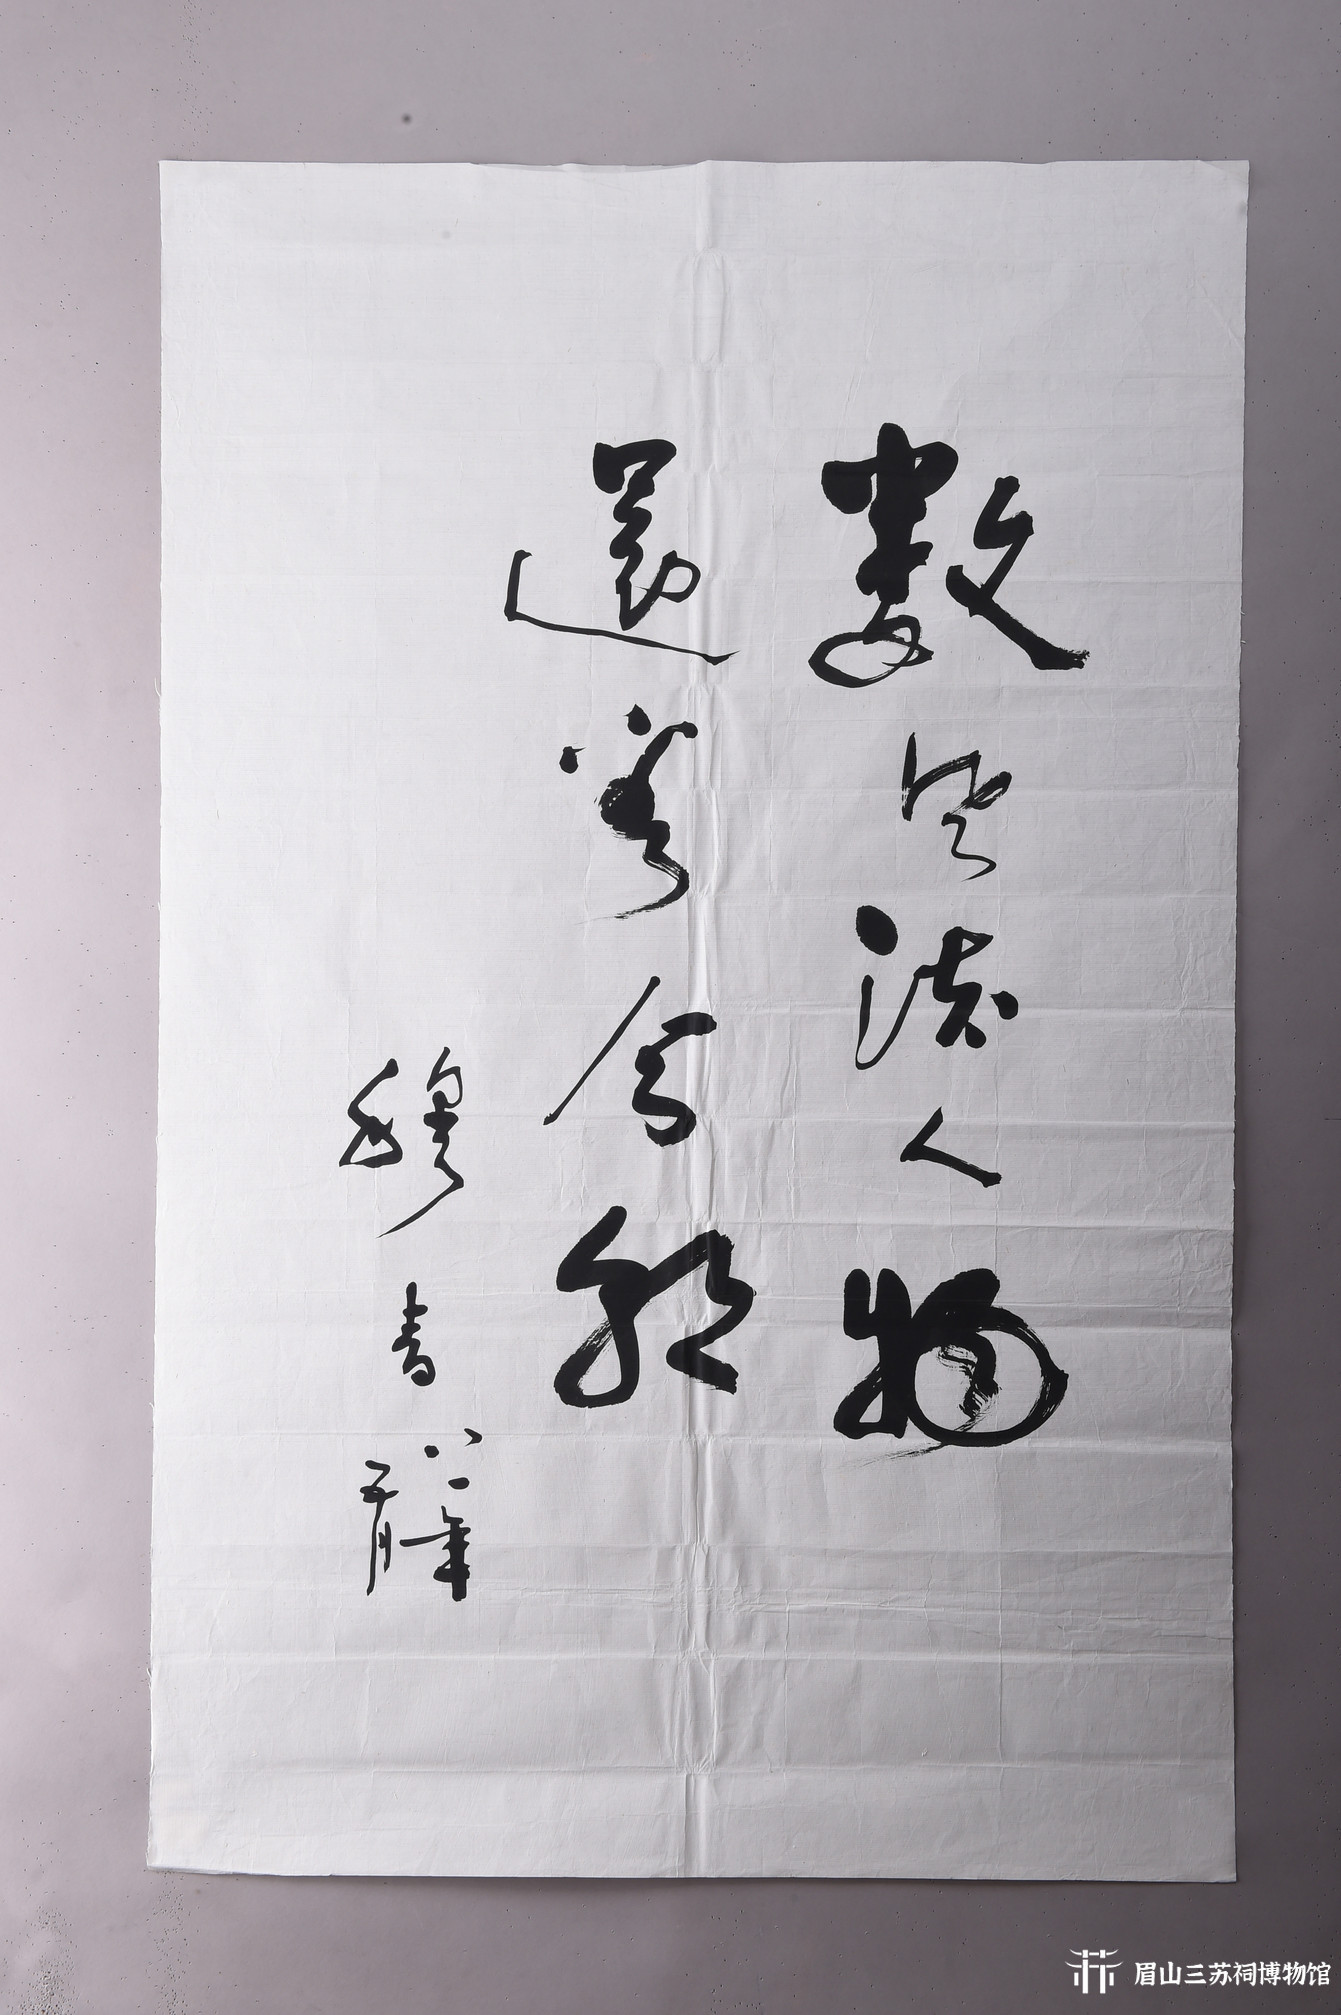 數風流人物
還看今朝
穆青
八一年
五月
眉山三苏祠博物馆